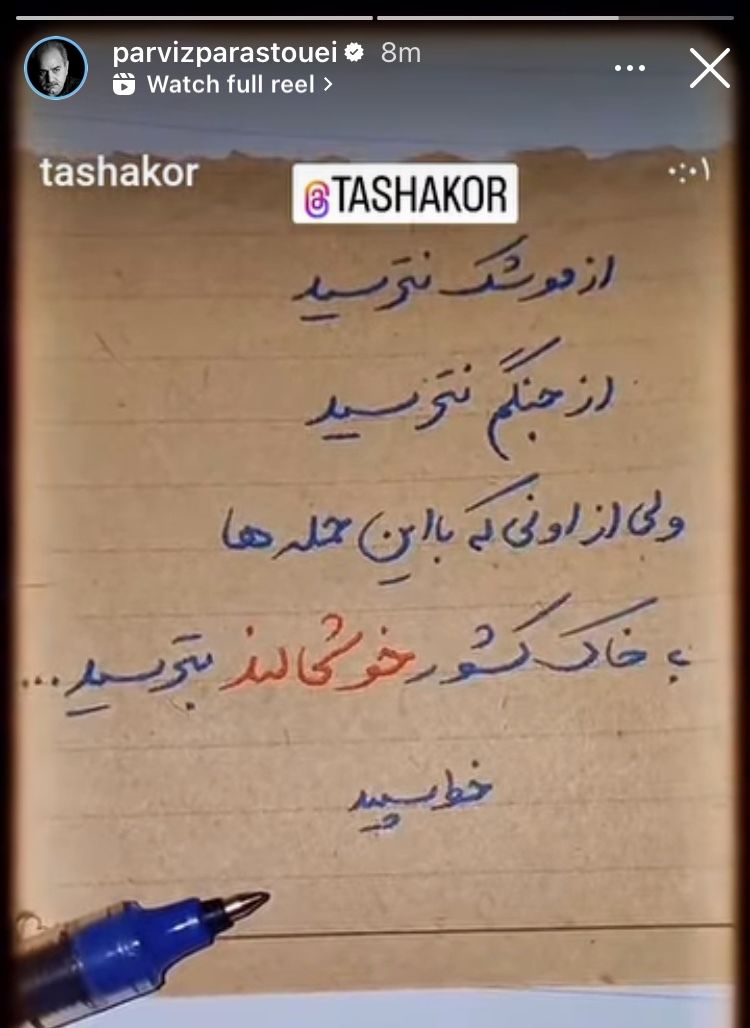 parvizparastouei 8m
Watch full reel >
tashakor
@TASHAKOR
۰:۰۱
از موشک نترسید
از جنگم نترسید
ولی از اونی که با این حمله ها
به خاک کشور خوشحالند بترسید...
خط سپید